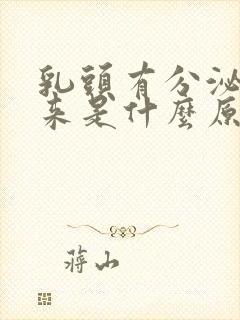 乳頭有分泌
来是什麼原
蔣山